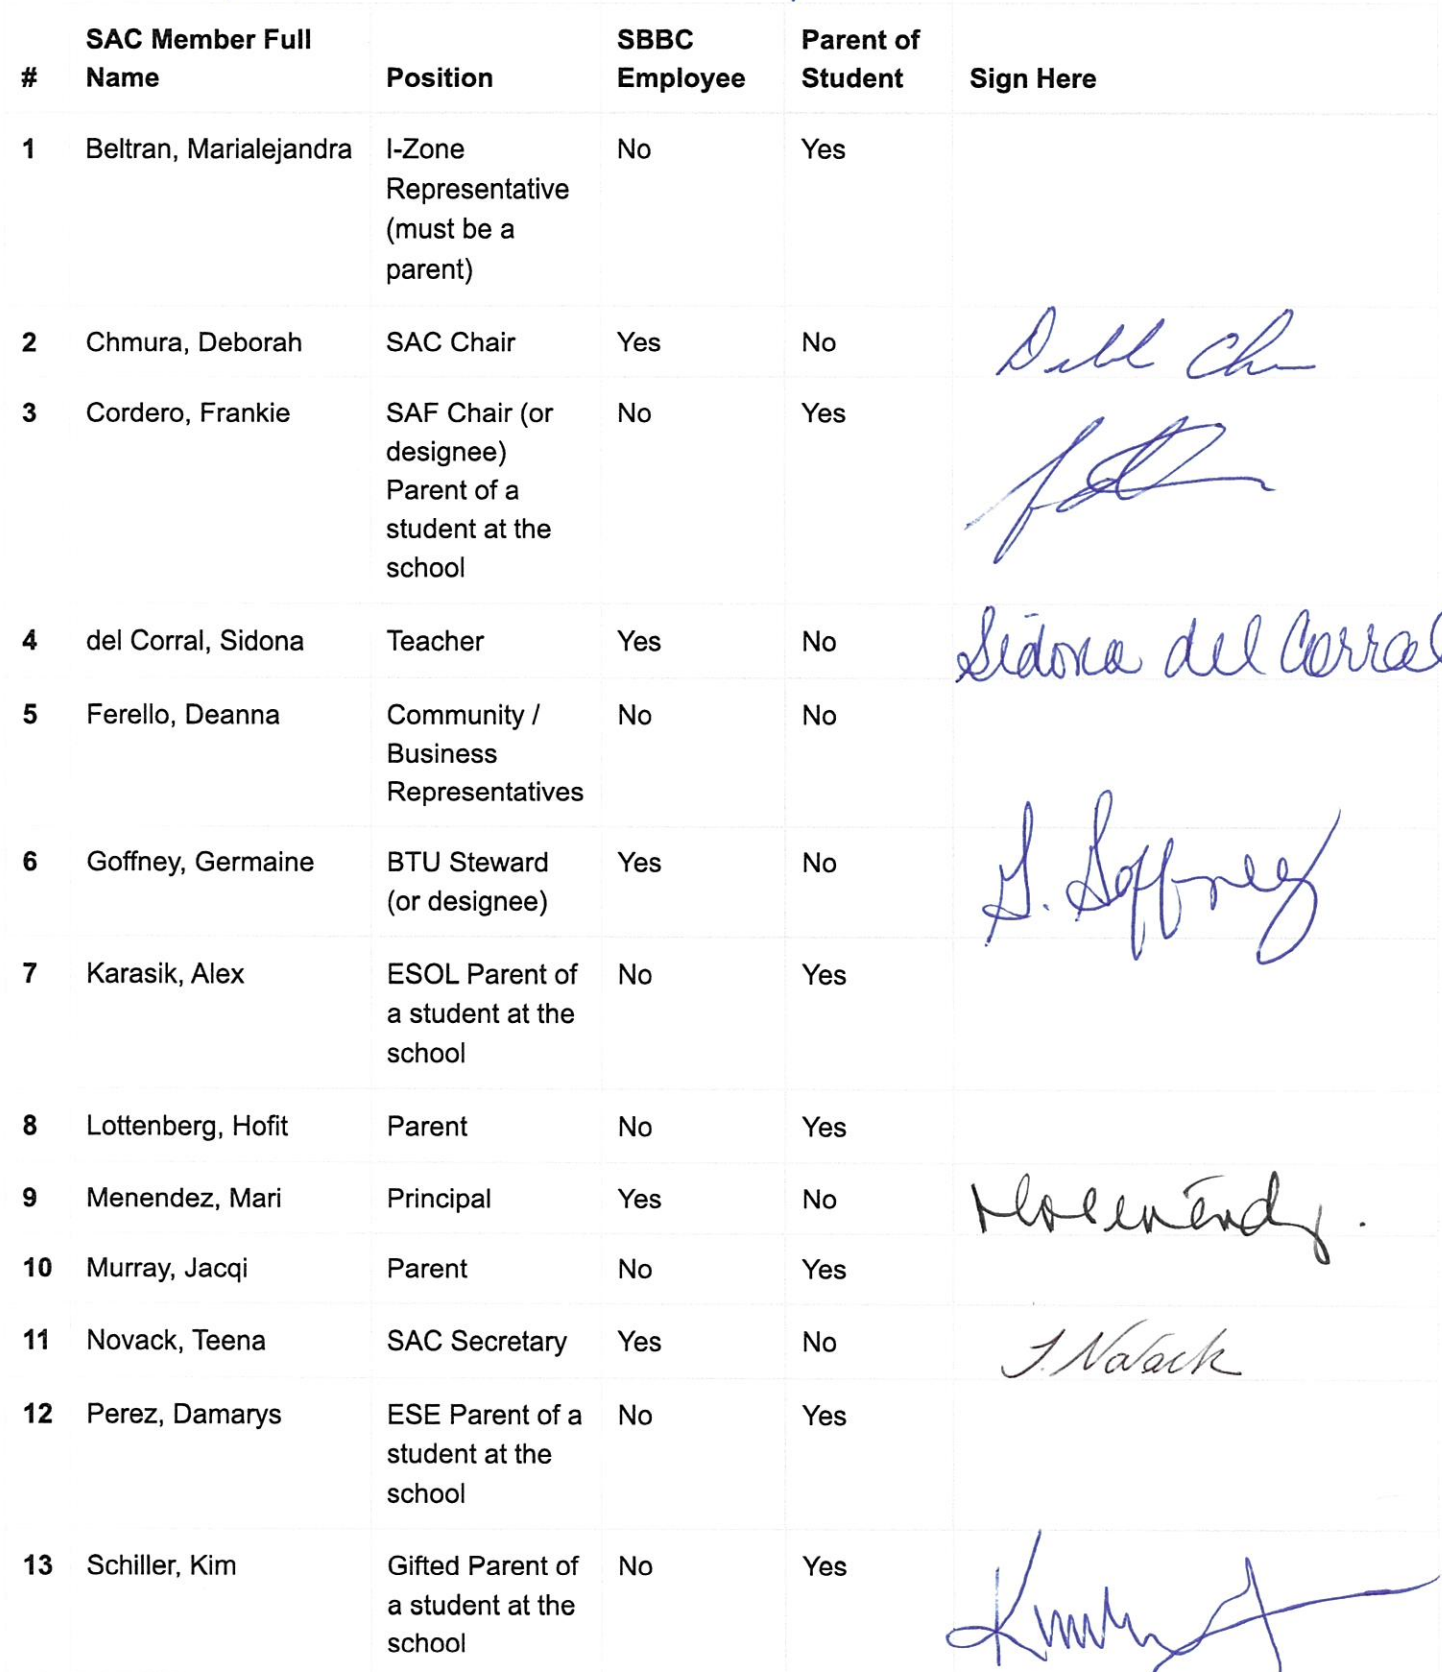 SAC Member Full SBBC Parent of
# Name Position Employee Student Sign Here
1 Beltran, Marialejandra I-Zone No Yes
Representative
(must be a
parent)
2 Chmura, Deborah SAC Chair Yes No
3 Cordero, Frankie SAF Chair (or No Yes
designee)
Parent of a
student at the
school
4 del Corral, Sidona Teacher Yes No Sidona del Corral
5 Ferello, Deanna Community / No No
Business
Representatives
6 Goffney, Germaine BTU Steward Yes No G. Goffney
(or designee)
7 Karasik, Alex ESOL Parent of No Yes
a student at the
school
8 Lottenberg, Hofit Parent No Yes
9 Menendez, Mari Principal Yes No
10 Murray, Jacqi Parent No Yes
11 Novack, Teena SAC Secretary Yes No T. Novack
12 Perez, Damarys ESE Parent of a No Yes
student at the
school
13 Schiller, Kim Gifted Parent of No Yes
a student at the
school